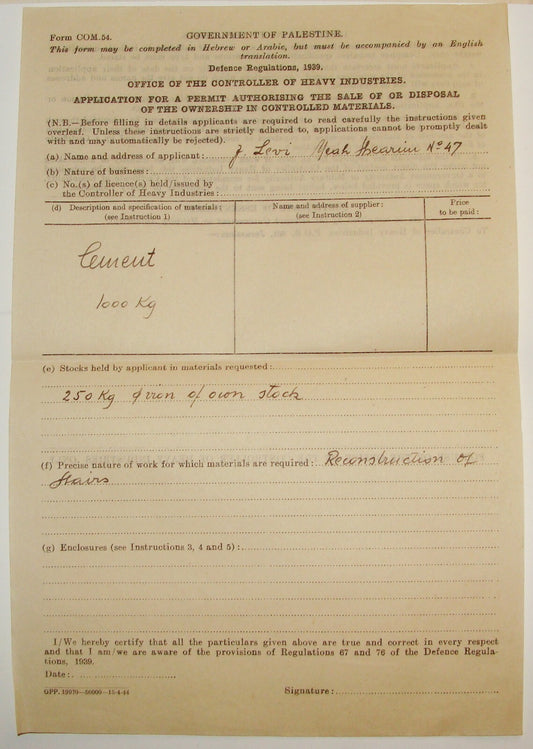 Form COM.54.
GOVERNMENT OF PALESTINE.
This form may be completed in Hebrew or Arabic, but must be accompanied by an English
translation.
Defence Regulations, 1939.
OFFICE OF THE CONTROLLER OF HEAVY INDUSTRIES.
APPLICATION FOR A PERMIT AUTHORISING THE SALE OF OR DISPOSAL
OF THE OWNERSHIP IN CONTROLLED MATERIALS.
(N.B.—Before filling in details applicants are required to read carefully the instructions given
overleaf. Unless these instructions are strictly adhered to, applications cannot be promptly dealt
with and may automatically be rejected).
(a) Name and address of applicant: J. Levi Meah Shearim No 47
(b) Nature of business:
(c) No.(s) of licence(s) held/issued by
the Controller of Heavy Industries:
(d) Description and specification of materials:
(see Instruction 1)
Name and address of supplier:
(see Instruction 2)
Price
to be paid:
Cement
1000 Kg
(e) Stocks held by applicant in materials requested:
250 Kg of own stock
(f) Precise nature of work for which materials are required: Reconstruction of
Stairs
(g) Enclosures (see Instructions 3, 4 and 5):
I/We hereby certify that all the particulars given above are true and correct in every respect
and that I am/we are aware of the provisions of Regulations 67 and 76 of the Defence Regula-
tions, 1939.
Date:
GPP. 12979—50000—15-4-44
Signature: